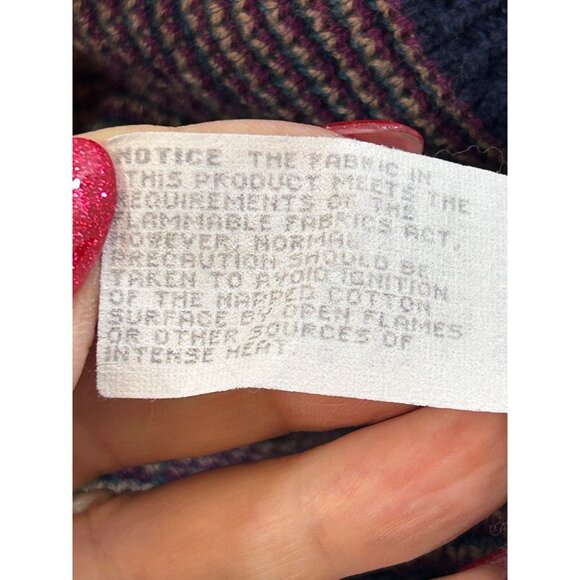 NOTICE THE FABRIC IN
THIS PRODUCT MEETS THE
REQUIREMENTS OF THE
FLAMMABLE FABRICS ACT,
HOWEVER, NORMAL
PRECAUTION SHOULD BE
TAKEN TO AVOID IGNITION
OF THE NAPPED COTTON
SURFACE BY OPEN FLAMES
OR OTHER SOURCES OF
INTENSE HEAT.